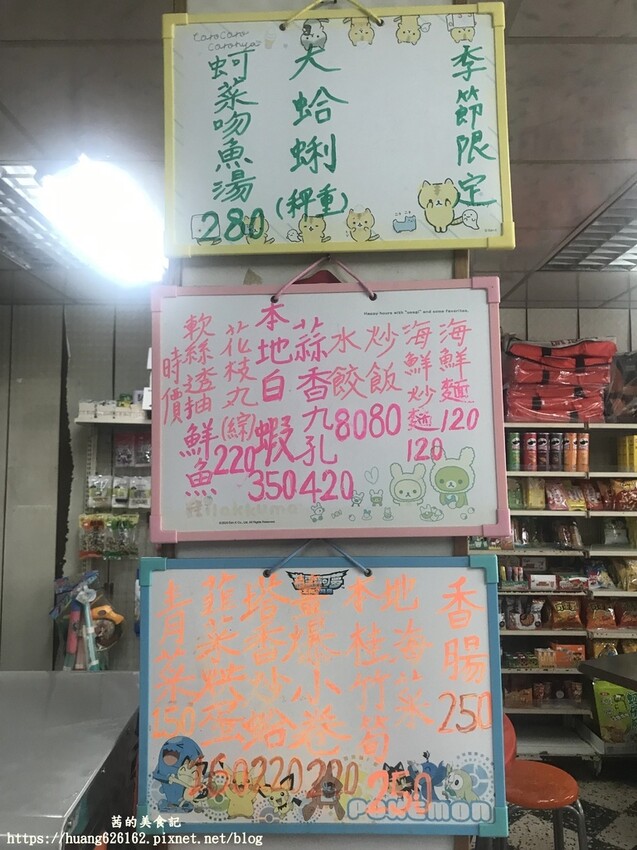 季節限定
大蛤蜊(秤重)
蚵菜吻魚湯280
海鮮麵120
海鮮炒麵120
炒飯80
水餃80
蒜香九孔420
本地白蝦350
花枝丸(綜)220
軟絲透抽鮮魚
時價
香腸250
本地海菜
桂竹筍250
爆小卷220
塔香炒蛤220
韮菜烘蛋160
青菜150
Pokémon
茜的美食記
https://huang626162.pixnet.net/blog